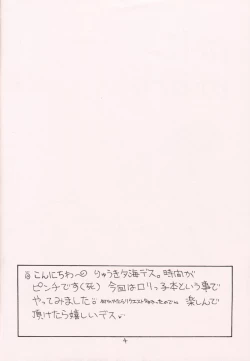 こんにちわ〜 りゅうき夕海デス。時間が
ピンチです(死) 今回はロリっ子本という事で
やってみました 楽しんで
頂けたら嬉しいデス
4